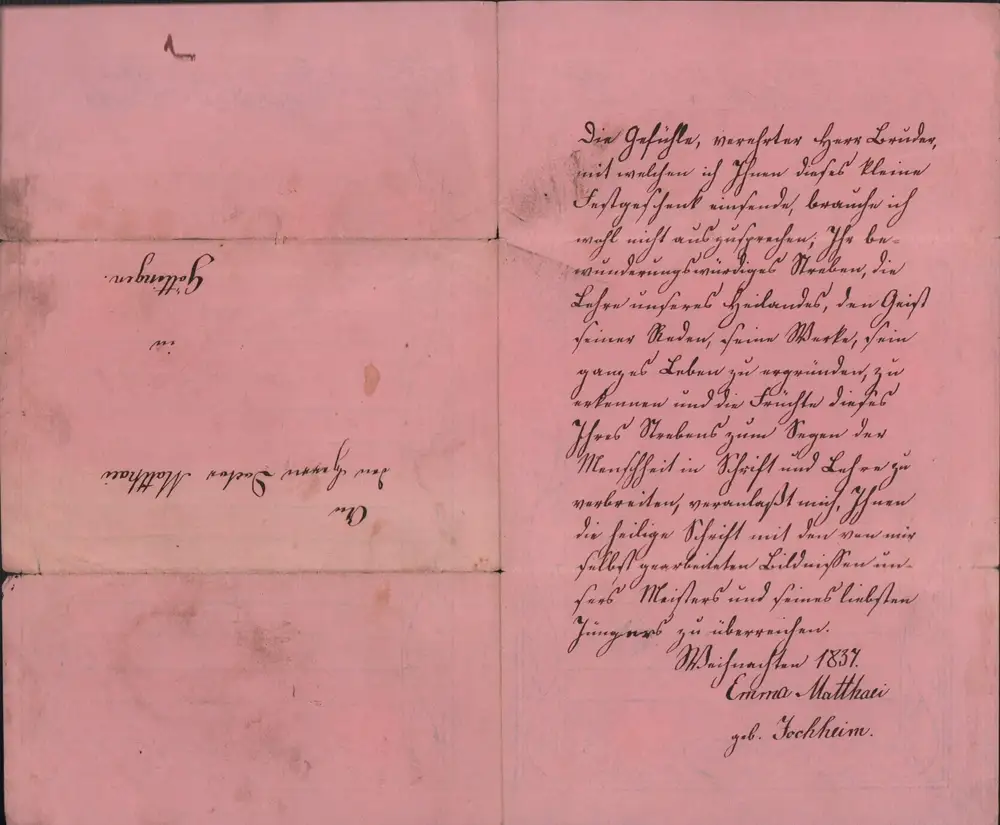 1
An
den Herrn Doctor Matthaei
in
Göttingen.
Die Gefühle, verehrter Herr Bruder,
mit welchen ich Ihnen dieses kleine
Festgeschenk einsende, brauche ich
wohl nicht auszusprechen; Ihr be-
wunderungswürdiges Streben, die
Lehre unseres Heilandes, den Geist
seiner Reden, seine Werke, sein
ganzes Leben zu ergründen, zu
erkennen und die Früchte dieses
Ihres Strebens zum Segen der
Menschheit in Schrift und Lehre zu
verbreiten, veranlaßt mich, Ihnen
die heilige Schrift mit den von mir
selbst gearbeiteten Bildnissen un-
sers Meisters und seines liebsten
Jüngers zu überreichen.
Weihnachten 1837.
Emma Matthaei
geb. Jochheim.